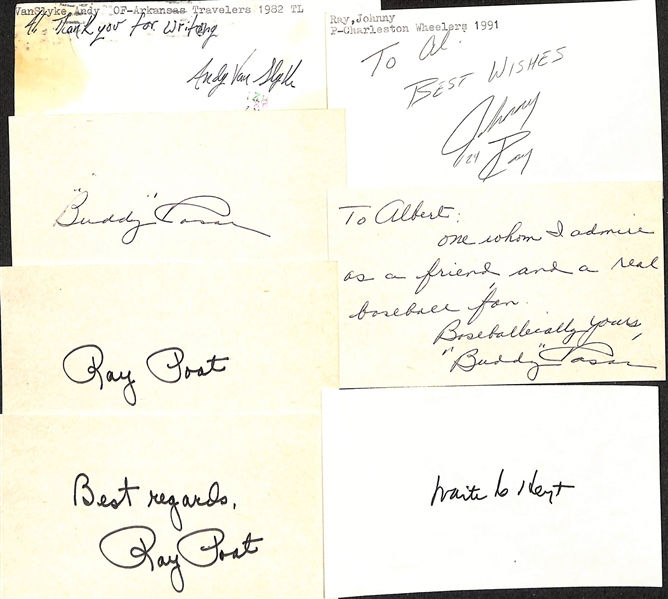 VanSlyke,Andy OF-Arkansas Travelers 1982 TL
Al Thank you for writing
Andy Van Slyke
Ray,Johnny
P-Charleston Wheelers 1991
To Al.
Best Wishes
Johnny
Ray
24
"Buddy" Rosar
To Albert:
one whom I admire
as a friend, and a real
baseball fan.
Baseballically yours,
"Buddy" Rosar
Ray Poat
Best regards,
Ray Poat
Waite C Hoyt